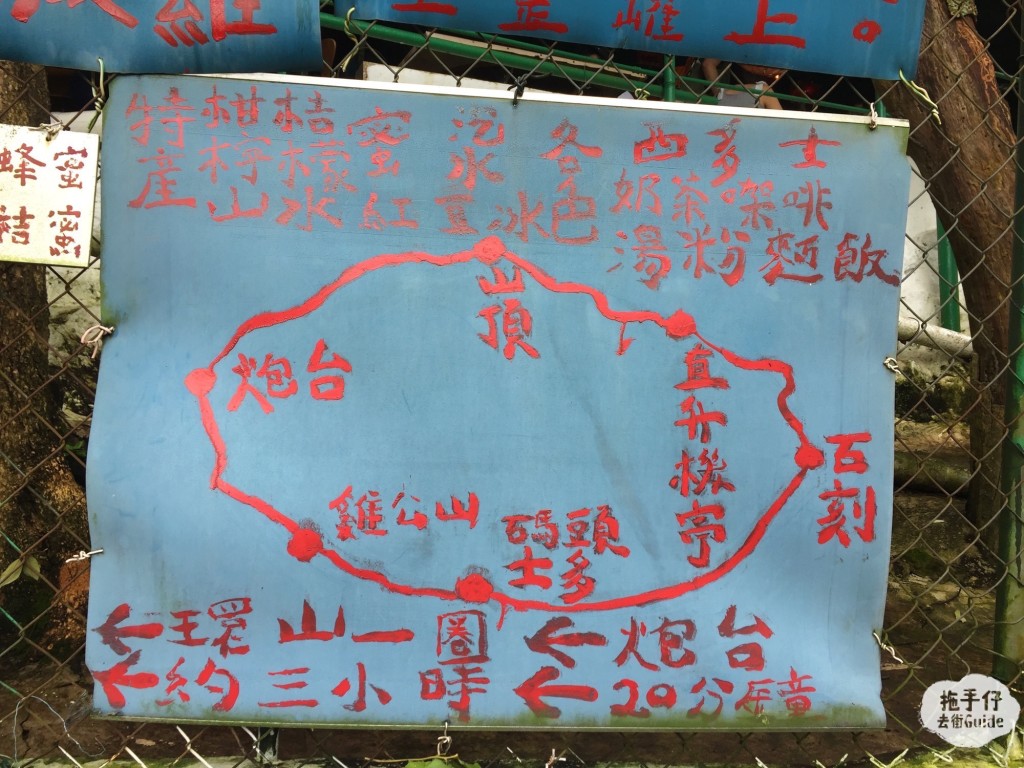 上
蜂蜜
桔蜜
特產
柑桔蜜
檸檬
山水
紅豆冰
汽水
各色
西多士
奶茶㗎啡
湯粉麵飯
山頂
炮台
直升機亭
石刻
雞公山
碼頭
士多
←環山一圈
←約三小時
←炮台
←20分鐘
拖手仔
去街Guide